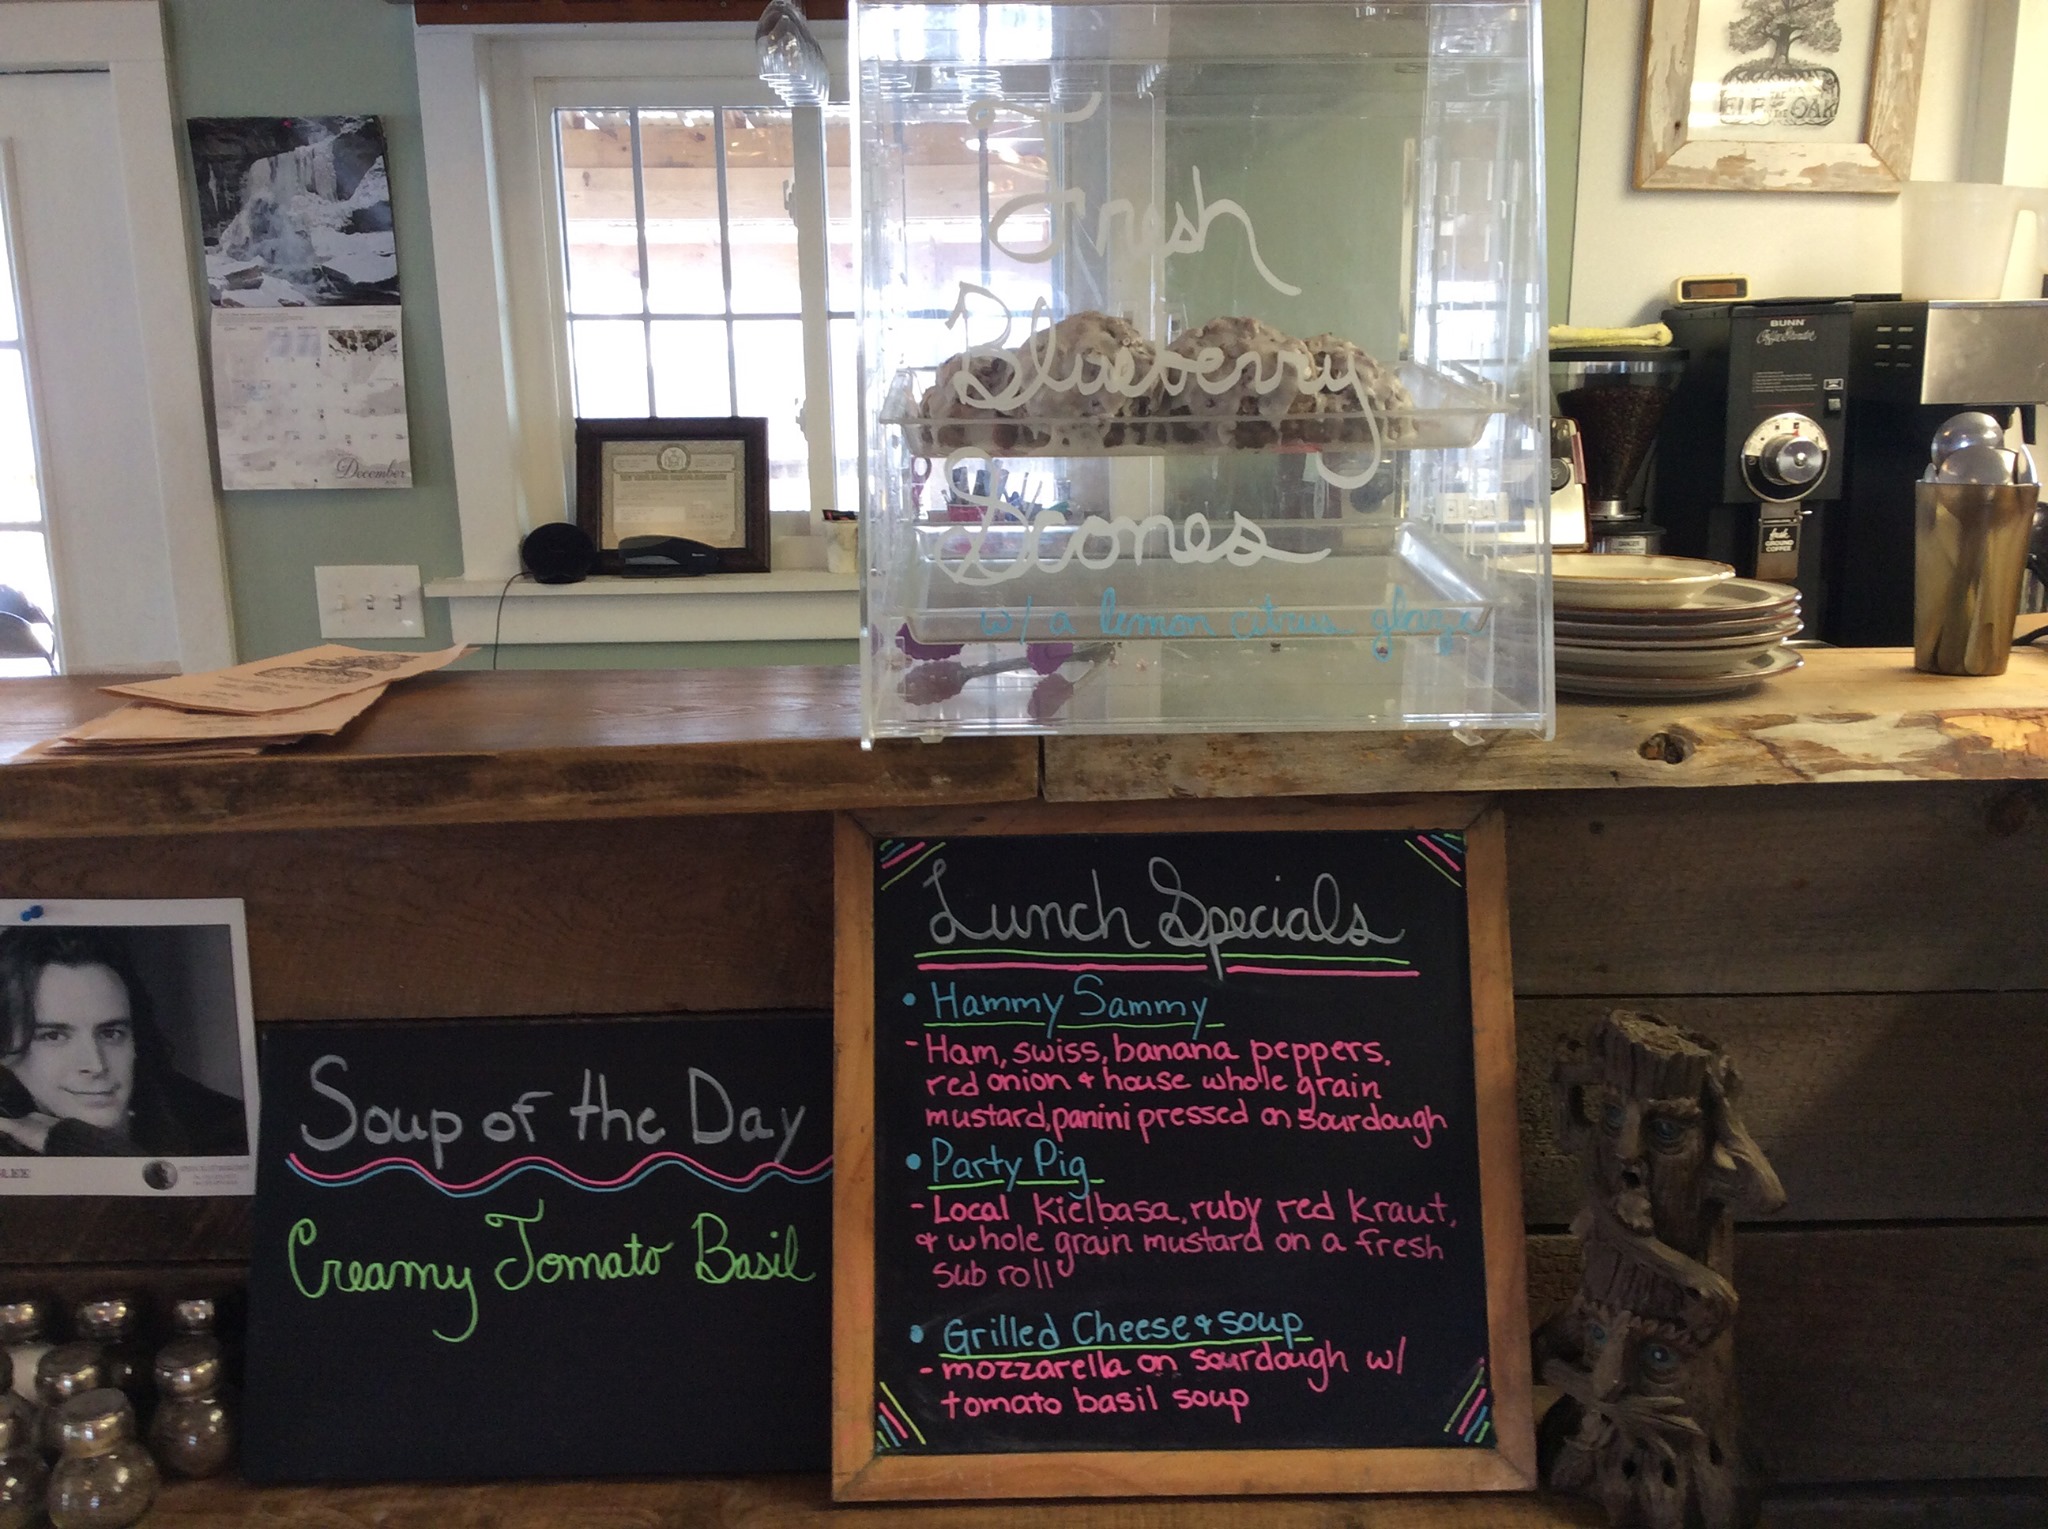 THE
ELF IN THE OAK
Fresh
Blueberry
Scones
w/ a lemon citrus glaze
BUNN
Coffee Grinder
fresh
GROUND
COFFEE
December
LEE
Soup of the Day
Creamy Tomato Basil
Lunch Specials
• Hammy Sammy
- Ham, swiss, banana peppers,
red onion & house whole grain
mustard, panini pressed on sourdough
• Party Pig
- Local Kielbasa, ruby red Kraut,
& whole grain mustard on a fresh
sub roll
• Grilled Cheese & soup
- mozzarella on sourdough w/
tomato basil soup